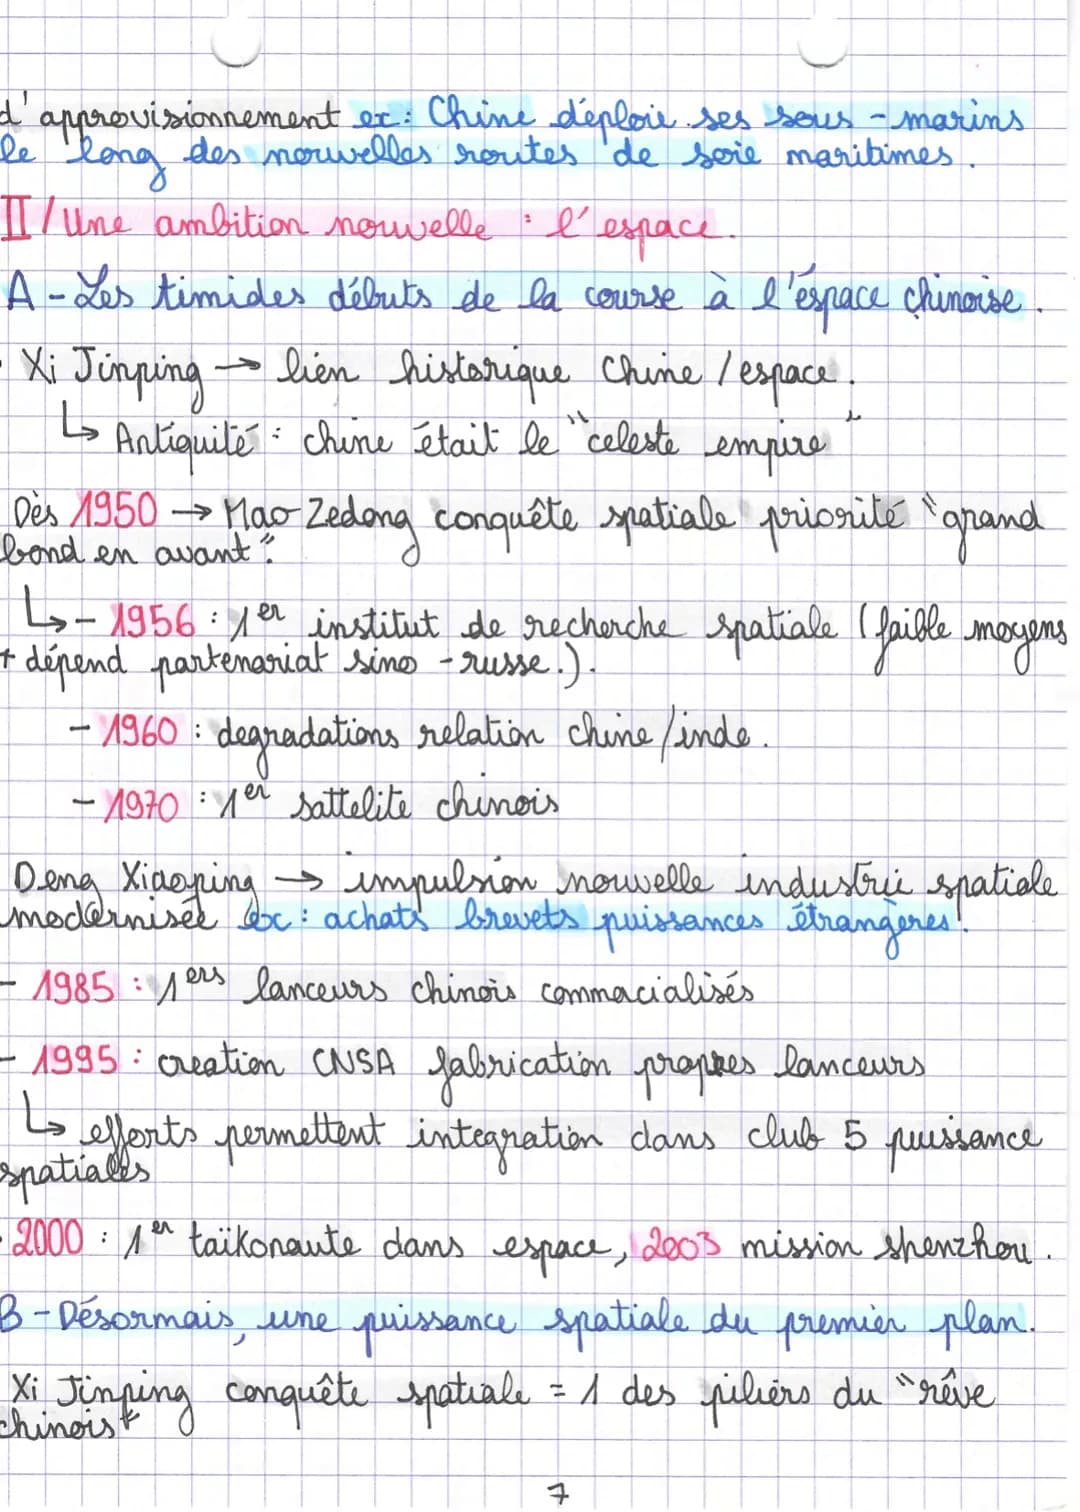 d'approvisionnement ex : Chine déploie ses sous-marins
le long des nouvelles routes de soie maritimes.
II/ Une ambition nouvelle : l'espace.
A - Les timides débuts de la course à l'espace chinoise.
- Xi Jinping → lien historique Chine / espace.
↳ Antiquité : chine était le "celeste empire"
Dès 1950 → Mao Zedong conquête spatiale priorité "grand
bond en avant".
↳ - 1956 : 1er institut de recherche spatiale (faible moyens
+ dépend partenariat sino-russe.).
- 1960 : degradations relation chine/inde.
- 1970 : 1er sattelite chinois
Deng Xiaoping → impulsion nouvelle industrie spatiale
modernisée ex : achats brevets puissances étrangères.
- 1985 : 1ers lanceurs chinois commacialisés
- 1995 : creation CNSA fabrication propres lanceurs
↳ efforts permettent integration dans club 5 puissance
spatiales
- 2000 : 1er taïkonaute dans espace, 2003 mission shenzhou.
B - Désormais, une puissance spatiale du premier plan.
Xi Jinping conquête spatiale = 1 des piliers du "rêve
chinois"
7